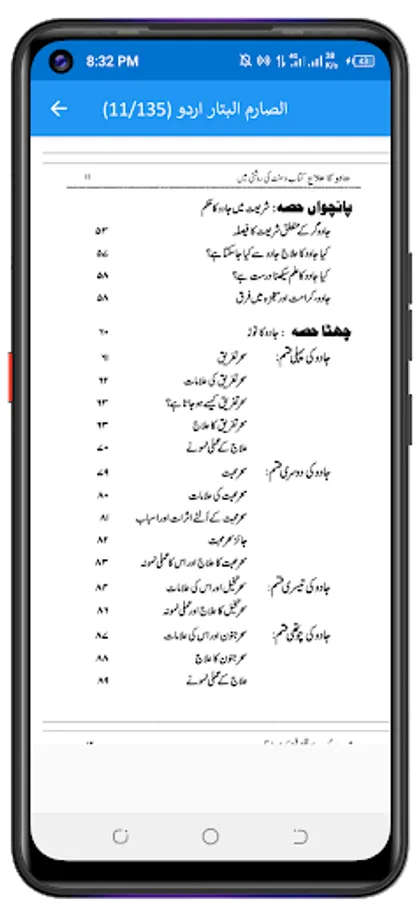 8:32 PM
الصارم البتار اردو (11/135)
جادو کا علاج کتاب وسنت کی روشنی میں ۱۱
پانچواں حصہ : شریعت میں جادو کا حکم
جادوگر کے متعلق شریعت کا فیصلہ ۵۳
کیا جادو کا علاج جادو سے کیا جاسکتا ہے؟ ۵۷
کیا جادو کا علم سیکھنا درست ہے؟ ۵۸
جادو، کرامت اور معجزہ میں فرق ۵۸
چھٹا حصہ : جادو کا توڑ ۶۰
جادو کی پہلی قسم: سحر تفریق ۶۱
سحر تفریق کی علامات ۶۲
سحر تفریق کیسے ہو جاتا ہے؟ ۶۳
سحر تفریق کا علاج ۶۳
علاج کے عملی نمونے ۷۰
جادو کی دوسری قسم: سحر محبت ۷۹
سحر محبت کی علامات ۸۰
سحر محبت کے اُلٹے اثرات اور اسباب ۸۱
جائز سحر محبت ۸۲
سحر محبت کا علاج اور اس کا عملی نمونہ ۸۳
جادو کی تیسری قسم: سحر تخیل اور اس کی علامات ۸۴
سحر تخیل کا علاج اور عملی نمونہ ۸۶
جادو کی چوتھی قسم: سحر جنون اور اس کی علامات ۸۷
سحر جنون کا علاج ۸۸
علاج کے عملی نمونے ۸۹